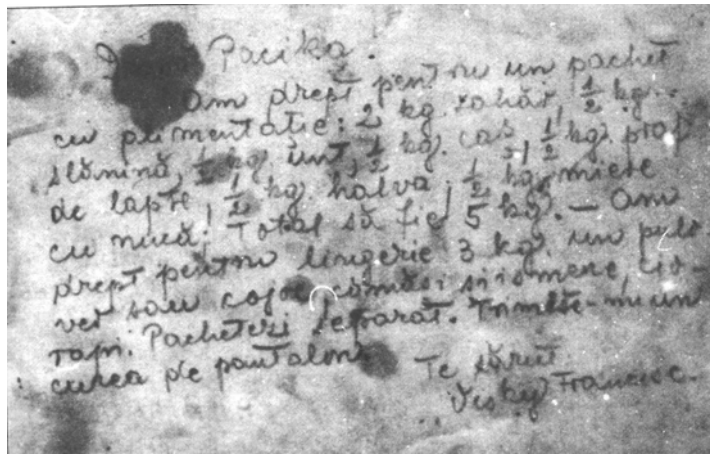 Pacika.
Am drept pentru un pachet
cu alimentatie: 2 kg. zahăr, ½ kg.
slănină, ½ kg. unt, ½ kg. caș, ½ kg. praf
de lapte, ½ kg. halva, ½ kg. miere
cu nucă, Total să fie 5 kg. — Am
drept pentru lingerie 3 kg. un pulo-
ver sau cojoc cămăși și ismene, cio-
rapi. Pachetezi separat. Trimite-mi un
curea de pantalon
Te sărut
Visky Francisc.